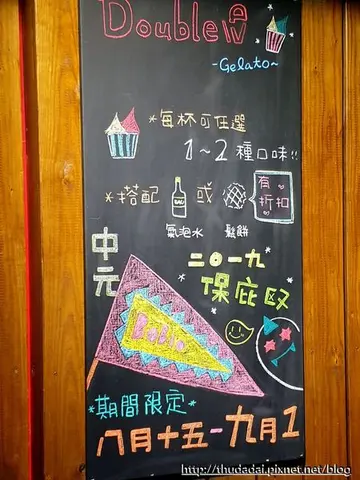 DoubleW
-Gelato~
*每杯可任選
1~2種口味!!
*搭配 或
有折扣
氣泡水 鬆餅
中元
二〇一九
保庇
*期間限定*
八月十五-九月1
http://thudadai.pixnet.net/blog